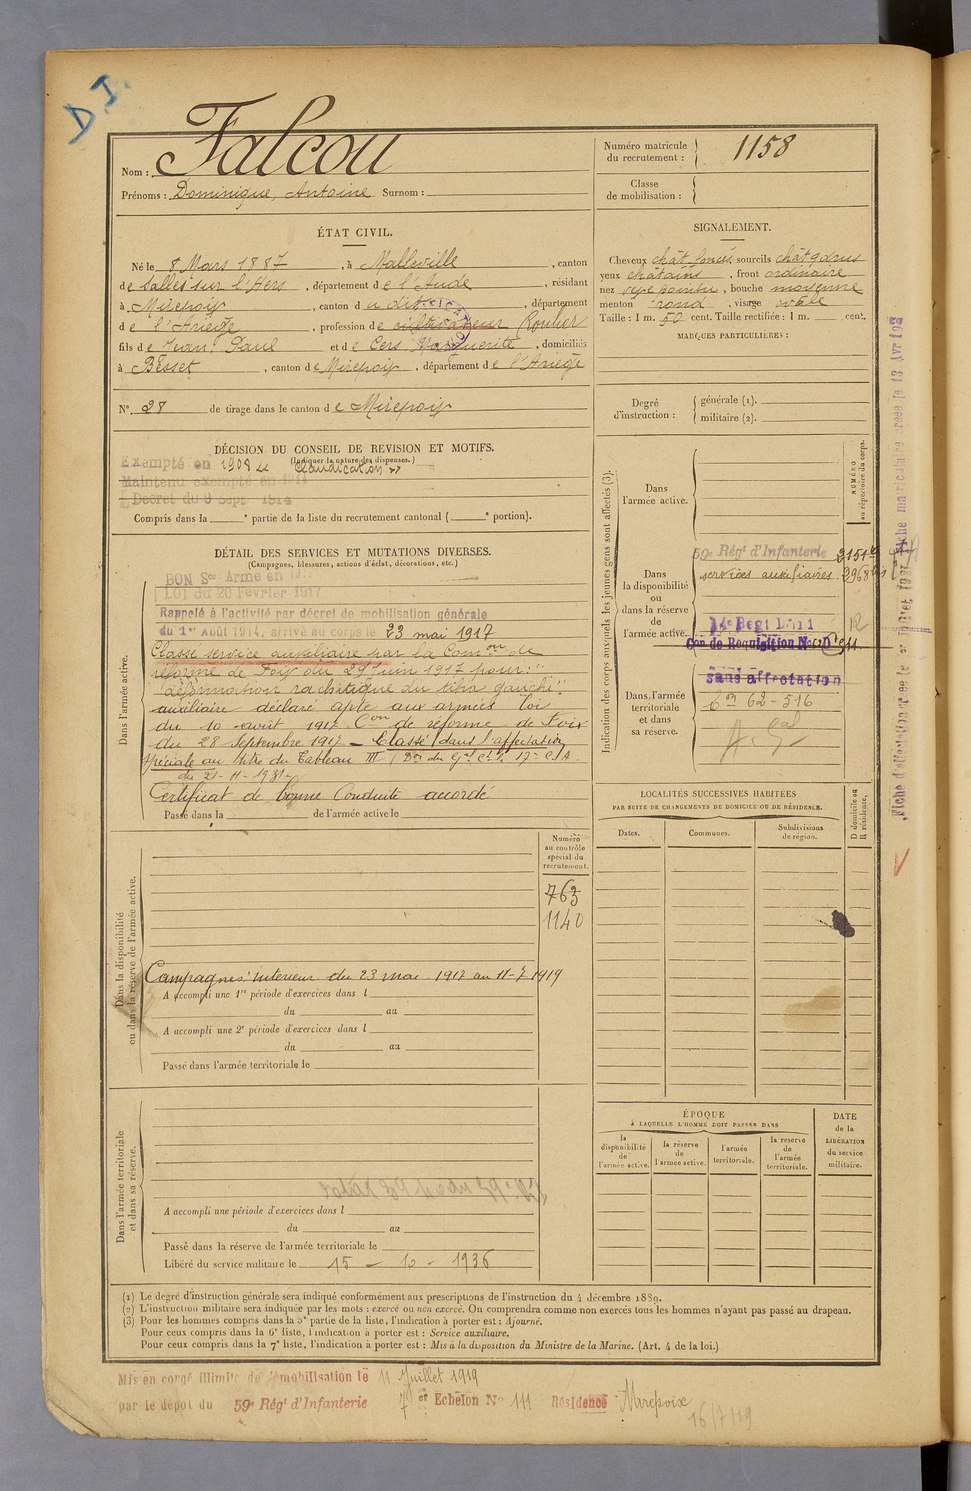 D. I.
Nom : Falcou
Prénoms : Dominique, Antoine Surnom :
Numéro matricule du recrutement : 1158
Classe de mobilisation :
ÉTAT CIVIL.
Né le 8 Mars 1887, à Malleville, canton
de Salles sur l'Hers, département de l'Aude, résidant
à Mirepoix, canton du dit, département
de l'Ariège, profession de cultivateur Roulier
fils de Jean, Paul et de Cers Marguerite, domiciliés
à Besset, canton de Mirepoix, département de l'Ariège
N° 28 de tirage dans le canton de Mirepoix
SIGNALEMENT.
Cheveux chât foncés, sourcils
yeux châtains, front ordinaire
nez bouche moyenne
menton rond, visage ovale
Taille : 1 m. 50 cent. Taille rectifiée : 1 m. cent.
MARQUES PARTICULIÈRES :
Degré d'instruction : générale (1).
militaire (2).
DÉCISION DU CONSEIL DE REVISION ET MOTIFS.
(Indiquer la nature des dispenses.)
Exempté en 1908 "Claudication"
Maintenu exempté en 1914
Décret du 9 Sept 1914
Compris dans la e partie de la liste du recrutement cantonal ( e portion).
DÉTAIL DES SERVICES ET MUTATIONS DIVERSES.
(Campagnes, blessures, actions d'éclat, décorations, etc.)
Dans l'armée active.
BON Sce Armé en
LOI du 20 Février 1917
Rappelé à l'activité par décret de mobilisation générale
du 1er Août 1914, arrivé au corps le 23 mai 1917
Classé service auxiliaire par la Comon de
réforme de Foix du 29 Juin 1917 pour :"
"déformation rachitique du tibia gauche".
auxiliaire déclaré apte aux armées loi
du 10 août 1917 Con de réforme de Foix
du 28 Septembre 1917 – Classé dans l'affectation
Spéciale au titre du Tableau III
du 21-11-1931-
Certificat de bonne Conduite accordé
Passé dans la de l'armée active le
Indication des corps auxquels les jeunes gens sont affectés (3).
NUMÉRO au répertoire du corps.
Dans l'armée active.
Dans la disponibilité ou dans la réserve de l'armée active.
59e Régt d'Infanterie 2151
services auxiliaires. 2968 bis
14e Regt
Con de Requisition N°
sans affectation
Dans l'armée territoriale et dans sa réserve.
62-516
Fiche matriculaire créée le 13 Avr
Fiche d'affectation créée le
LOCALITÉS SUCCESSIVES HABITÉES
PAR SUITE DE CHANGEMENTS DE DOMICILE OU DE RÉSIDENCE.
Dates. Communes. Subdivisions de région. D domicile ou R résidence.
Numéro au contrôle spécial du recrutement.
763
1140
Dans la disponibilité ou dans la réserve de l'armée active.
Campagnes : intérieur du 23 mai 1917 au 11-7 1919
A accompli une 1re période d'exercices dans l
du au
A accompli une 2e période d'exercices dans l
du au
Passé dans l'armée territoriale le
ÉPOQUE
À LAQUELLE L'HOMME DOIT PASSER DANS
la disponibilité de l'armée active. la réserve de l'armée active. l'armée territoriale. la réserve de l'armée territoriale.
DATE de la LIBÉRATION du service militaire.
Dans l'armée territoriale et dans sa réserve.
A accompli une période d'exercices dans l
du au
Passé dans la réserve de l'armée territoriale le
Libéré du service militaire le 15 – 10 – 1936
(1) Le degré d'instruction générale sera indiqué conformément aux prescriptions de l'instruction du 4 décembre 1889.
(2) L'instruction militaire sera indiquée par les mots : exercé ou non exercé. On comprendra comme non exercés tous les hommes n'ayant pas passé au drapeau.
(3) Pour les hommes compris dans la 5e partie de la liste, l'indication à porter est : Ajourné.
Pour ceux compris dans la 6e liste, l'indication à porter est : Service auxiliaire.
Pour ceux compris dans la 7e liste, l'indication à porter est : Mis à la disposition du Ministre de la Marine. (Art. 4 de la loi.)
Mis en congé illimité de démobilisation le 11 Juillet 1919
par le dépôt du 59e Régt d'Infanterie 7e Echelon N° 111 Résidence Mirepoix
16/7/19